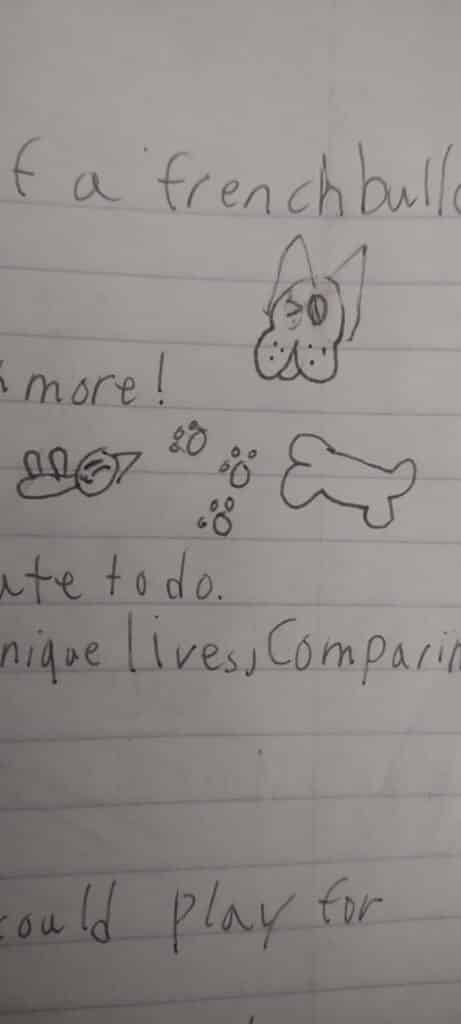 f a frenchbulld
more!
ate to do.
nique lives, Comparin
could play for